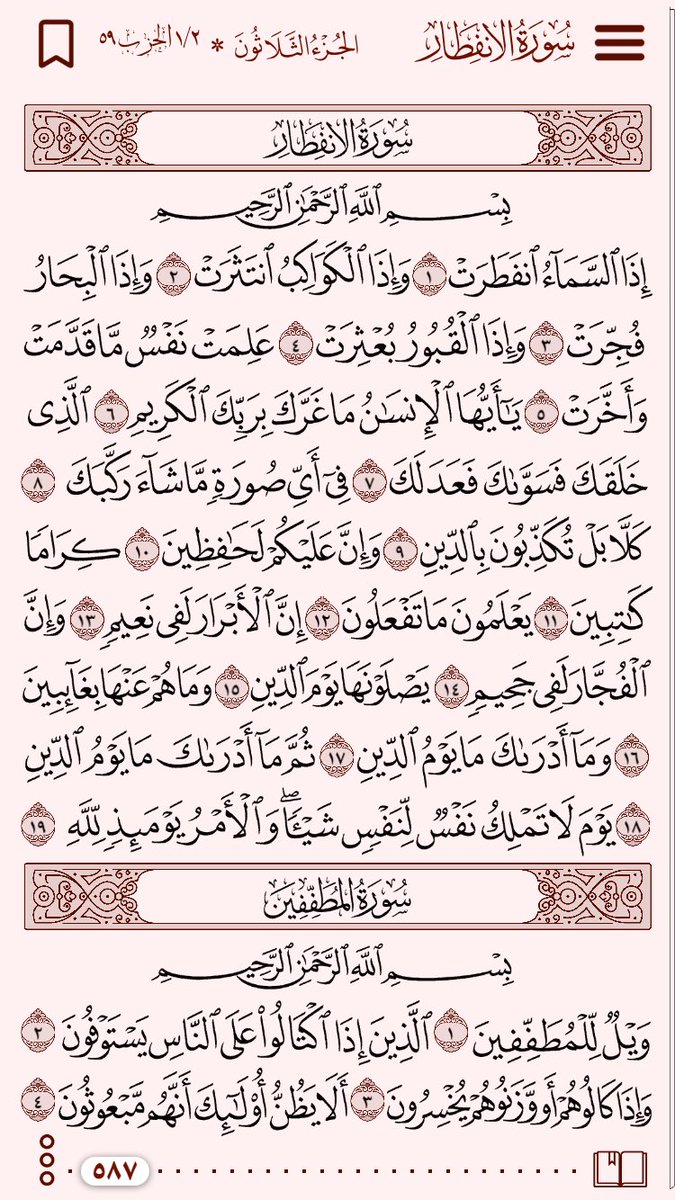 سُورَةُ الانفِطَارِ الجُزْءُ الثَّلَاثُونَ * ١/٢ الحِزْب ٥٩
سُورَةُ الانفِطَارِ
بِسْمِ ٱللَّهِ ٱلرَّحْمَٰنِ ٱلرَّحِيمِ
إِذَا ٱلسَّمَآءُ ٱنفَطَرَتْ ١ وَإِذَا ٱلْكَوَاكِبُ ٱنتَثَرَتْ ٢ وَإِذَا ٱلْبِحَارُ
فُجِّرَتْ ٣ وَإِذَا ٱلْقُبُورُ بُعْثِرَتْ ٤ عَلِمَتْ نَفْسٌ مَّا قَدَّمَتْ
وَأَخَّرَتْ ٥ يَٰٓأَيُّهَا ٱلْإِنسَٰنُ مَا غَرَّكَ بِرَبِّكَ ٱلْكَرِيمِ ٦ ٱلَّذِى
خَلَقَكَ فَسَوَّىٰكَ فَعَدَلَكَ ٧ فِىٓ أَىِّ صُورَةٍ مَّا شَآءَ رَكَّبَكَ ٨
كَلَّا بَلْ تُكَذِّبُونَ بِٱلدِّينِ ٩ وَإِنَّ عَلَيْكُمْ لَحَٰفِظِينَ ١٠ كِرَامًا
كَٰتِبِينَ ١١ يَعْلَمُونَ مَا تَفْعَلُونَ ١٢ إِنَّ ٱلْأَبْرَارَ لَفِى نَعِيمٍ ١٣ وَإِنَّ
ٱلْفُجَّارَ لَفِى جَحِيمٍ ١٤ يَصْلَوْنَهَا يَوْمَ ٱلدِّينِ ١٥ وَمَا هُمْ عَنْهَا بِغَآئِبِينَ
١٦ وَمَآ أَدْرَىٰكَ مَا يَوْمُ ٱلدِّينِ ١٧ ثُمَّ مَآ أَدْرَىٰكَ مَا يَوْمُ ٱلدِّينِ
١٨ يَوْمَ لَا تَمْلِكُ نَفْسٌ لِّنَفْسٍ شَيْـًٔا ۖ وَٱلْأَمْرُ يَوْمَئِذٍ لِّلَّهِ ١٩
سُورَةُ المُطَفِّفِينَ
بِسْمِ ٱللَّهِ ٱلرَّحْمَٰنِ ٱلرَّحِيمِ
وَيْلٌ لِّلْمُطَفِّفِينَ ١ ٱلَّذِينَ إِذَا ٱكْتَالُوا۟ عَلَى ٱلنَّاسِ يَسْتَوْفُونَ ٢
وَإِذَا كَالُوهُمْ أَو وَّزَنُوهُمْ يُخْسِرُونَ ٣ أَلَا يَظُنُّ أُو۟لَٰٓئِكَ أَنَّهُم مَّبْعُوثُونَ ٤
٥٨٧